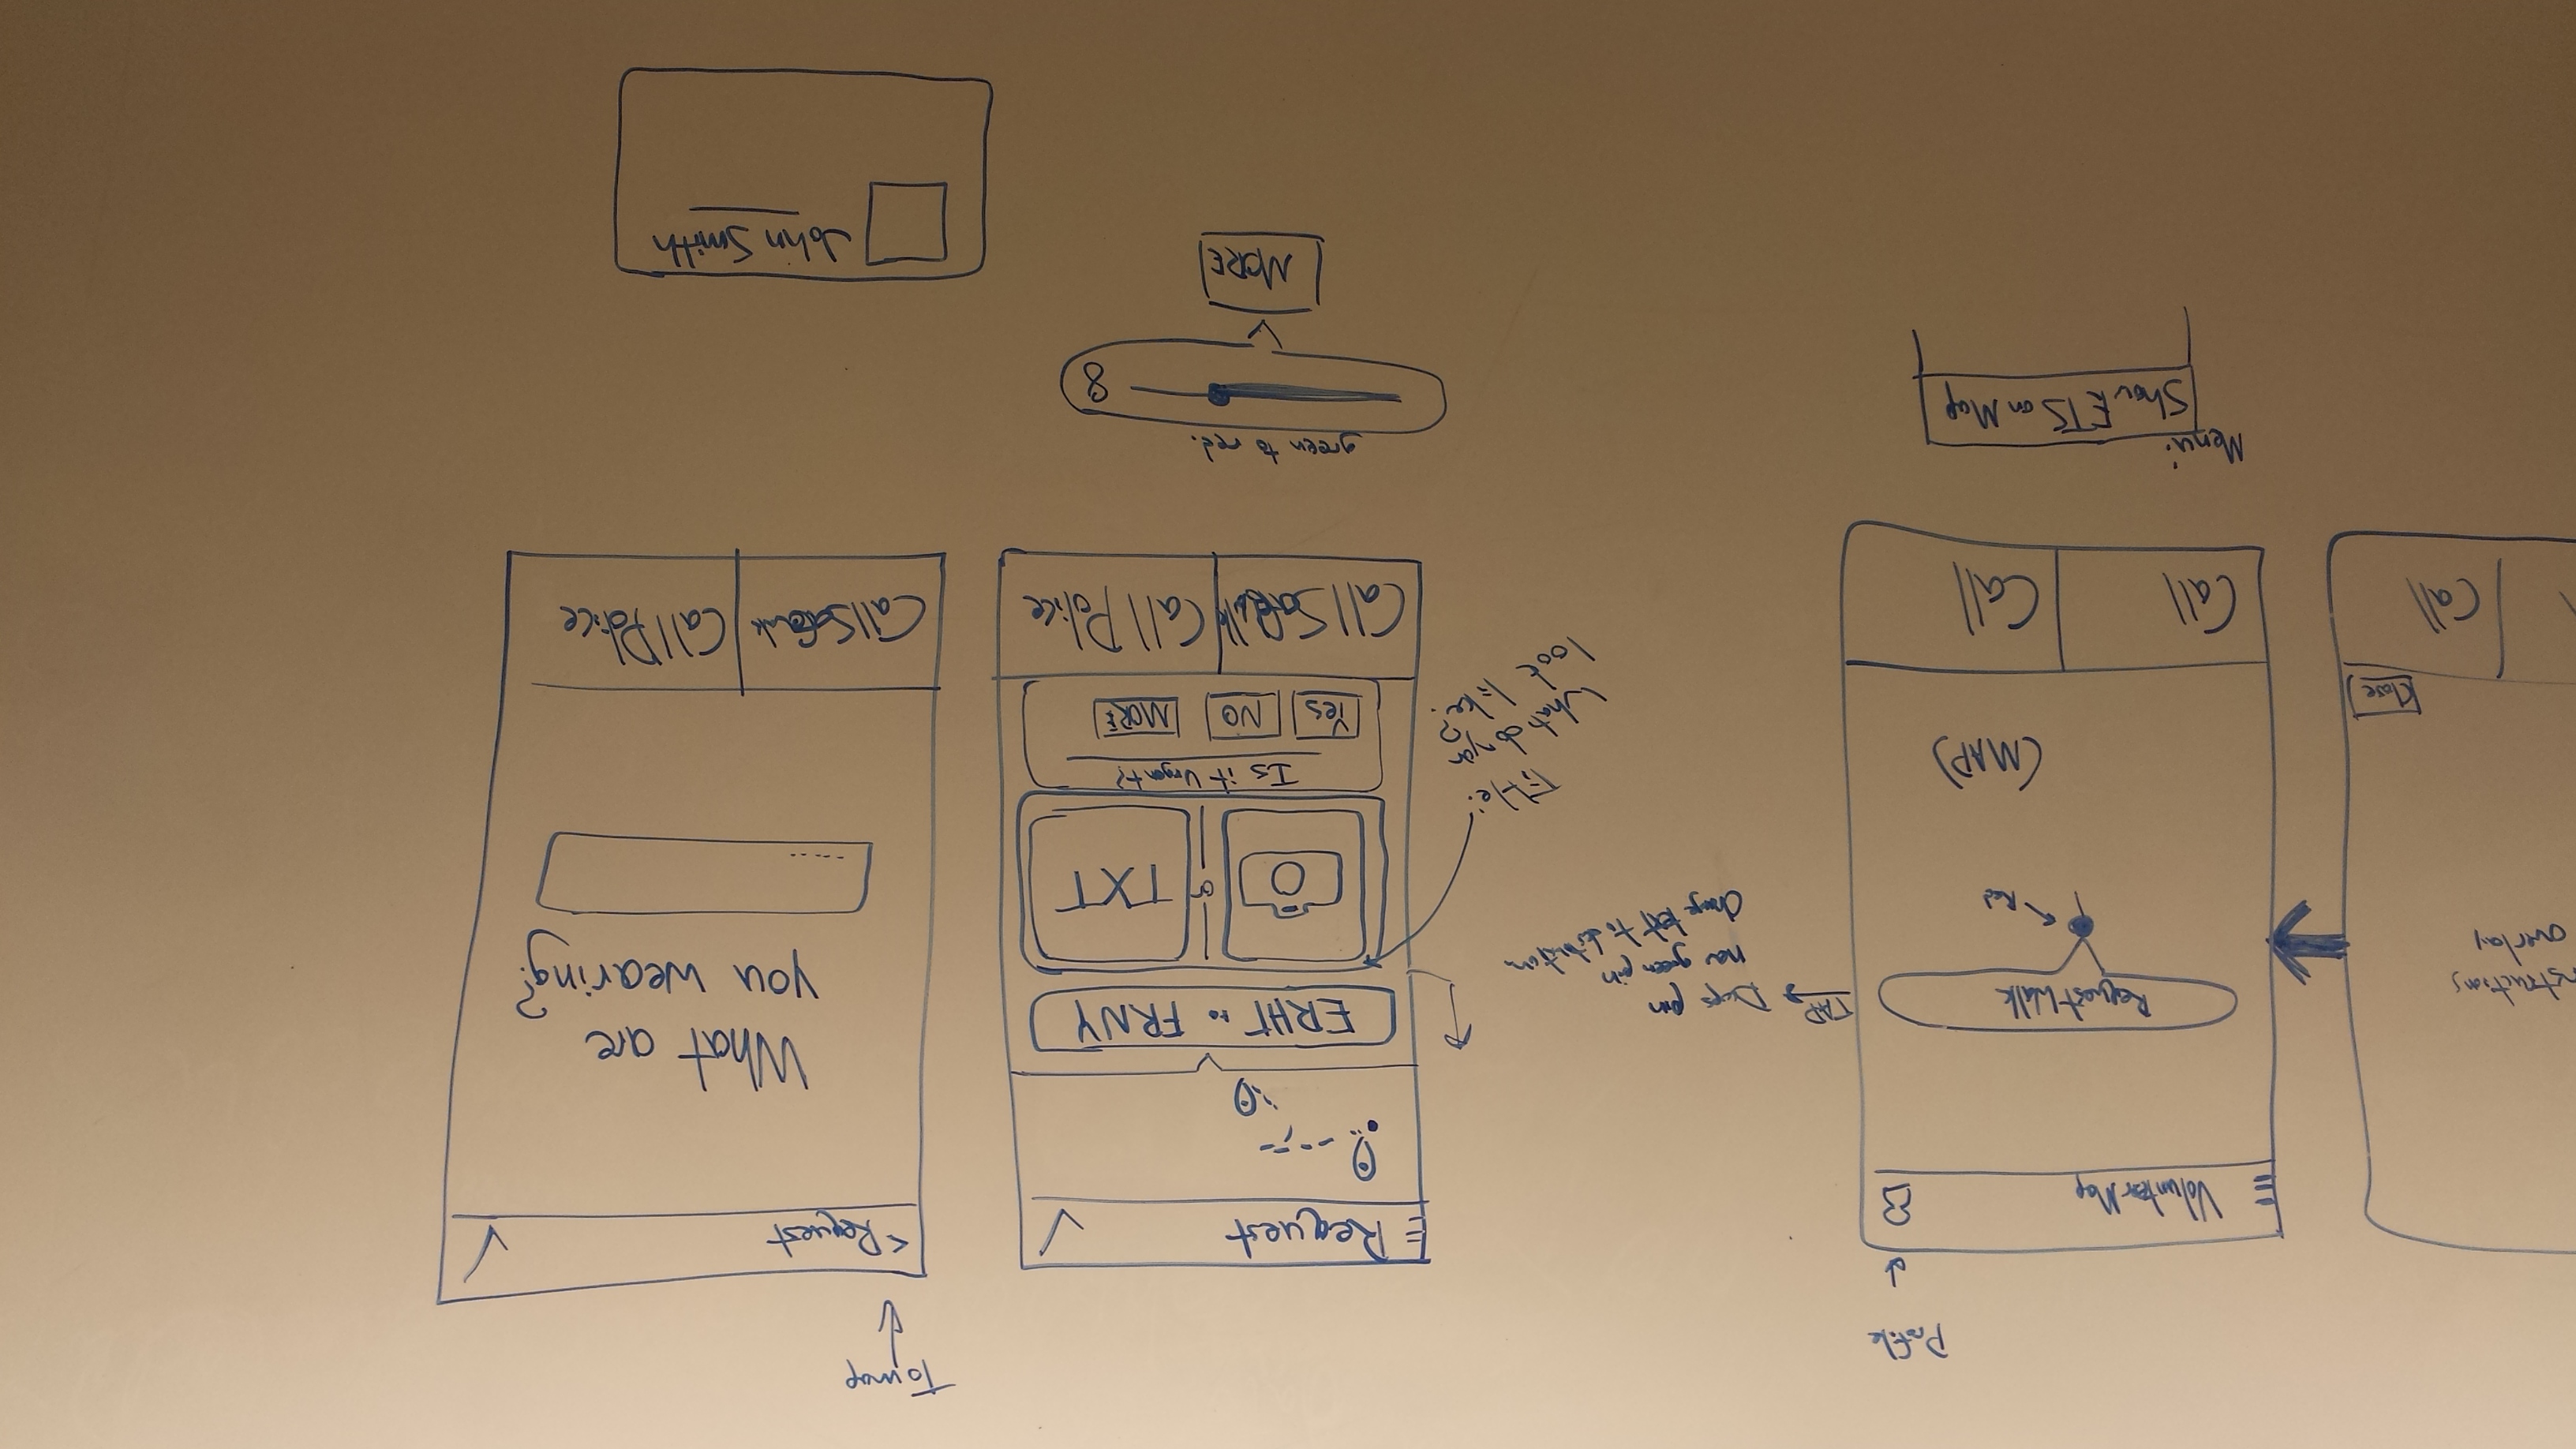 nstructions
overlay
Close
Call
Profile
Volunteer Map
Request Walk
Red
(MAP)
Call
Call
TAP
Drops pin
new green pin
change text to destination
Menu:
Show ETS on Map
Request
ERHT to FRNY
or
TXT
Title:
What do you
look like?
Is it Urgent?
Yes
NO
MORE
Call Safewalk
Call Police
green to red.
8
MORE
To map
< Request
What are
you wearing?
Call Safewalk
Call Police
John Smith